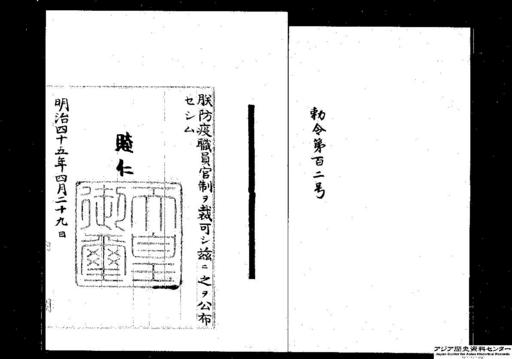 勅令第百二号
朕防疫職員官制ヲ裁可シ茲ニ之ヲ公布
セシム
睦仁
天皇
御璽
明治四十五年四月二十九日
アジア歴史資料センター
Japan Center for Asian Historical Records